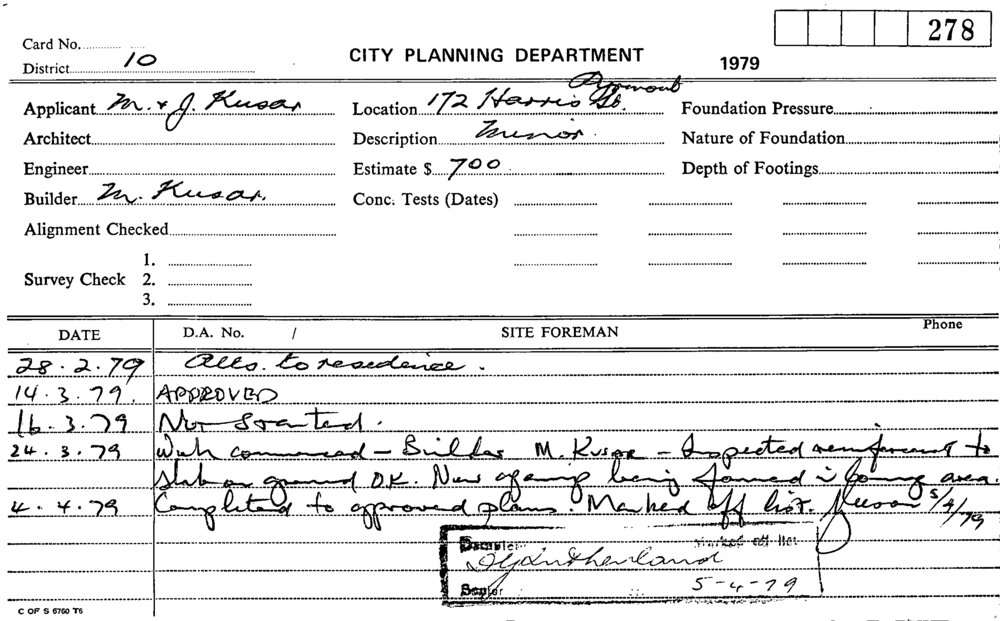 278
Card No.
District 10
CITY PLANNING DEPARTMENT
1979
Applicant M. & J. Kusar
Location 172 Harris St. Pyrmont
Foundation Pressure
Architect
Description Minor.
Nature of Foundation
Engineer
Estimate $ 700
Depth of Footings
Builder M. Kusar.
Conc. Tests (Dates)
Alignment Checked
Survey Check
1.
2.
3.
DATE D.A. No. / SITE FOREMAN Phone
28.2.79 Alts. to residence.
14.3.79. APPROVED
16.3.79 Not Started.
24.3.79 Work commenced - Builder M. Kusar - Inspected reinforcement to
Slab on ground O.K. New opening being formed in living area.
4.4.79 Completed to approved plans. Marked off list. 5/4/79
Marked off list
Sutherland
Senior 5-4-79
C OF S 6760 T6